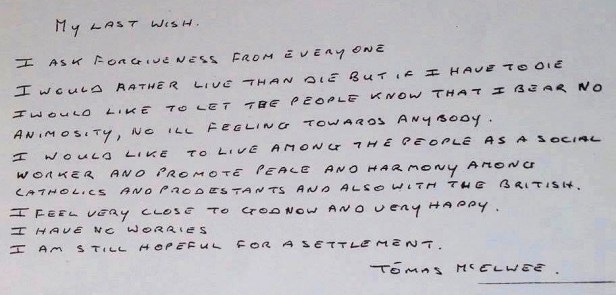 MY LAST WISH.
I ASK FORGIVENESS FROM EVERYONE
I WOULD RATHER LIVE THAN DIE BUT IF I HAVE TO DIE
I WOULD LIKE TO LET THE PEOPLE KNOW THAT I BEAR NO
ANIMOSITY, NO ILL FEELING TOWARDS ANYBODY.
I WOULD LIKE TO LIVE AMONG THE PEOPLE AS A SOCIAL
WORKER AND PROMOTE PEACE AND HARMONY AMONG
CATHOLICS AND PRODESTANTS AND ALSO WITH THE BRITISH.
I FEEL VERY CLOSE TO GOD NOW AND VERY HAPPY.
I HAVE NO WORRIES
I AM STILL HOPEFUL FOR A SETTLEMENT.
TÓMAS MCELWEE.